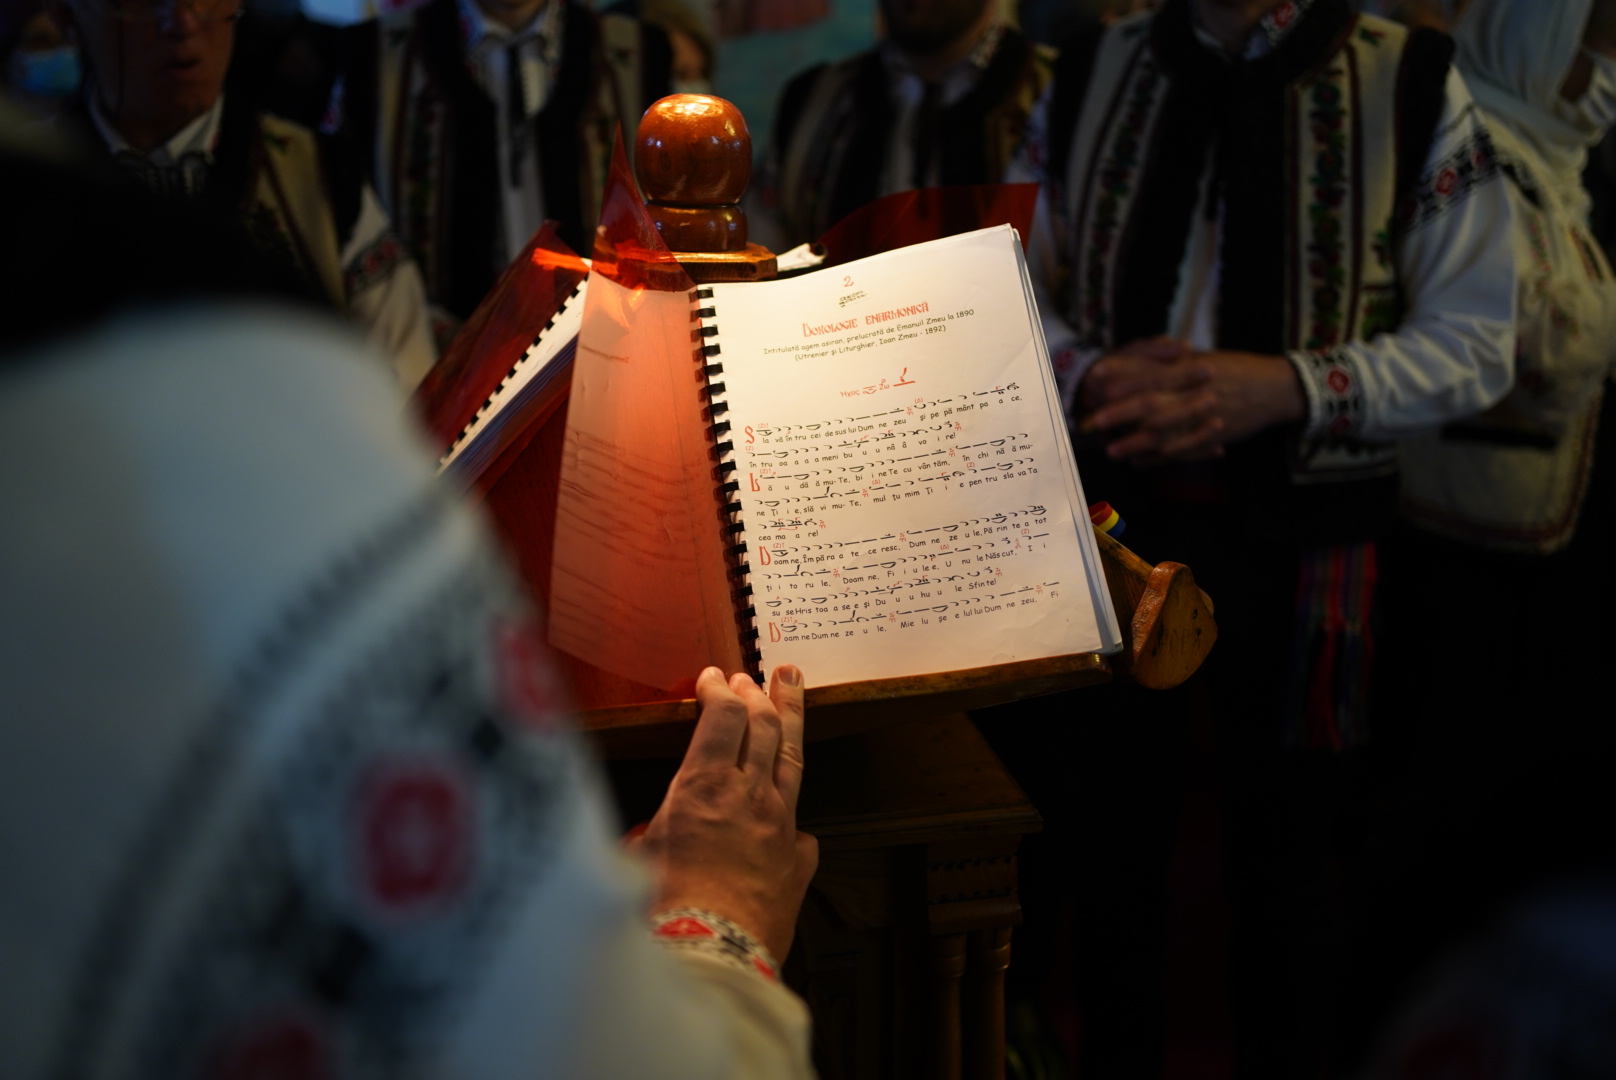 2
DOXOLOGIE ENARMONICĂ
Intitulată agem asiran, prelucrată de Emanuil Zmeu la 1890
(Utrenier și Liturghier, Ioan Zmeu - 1892)
Glas Zω
S la vă în tru cei de sus lui Dum ne zeu și pe pă mânt pa a ce,
în tru oa a a a meni bu u u nă ă vo i re!
L ă u dă ă mu- Te, bi i ne Te cu vân tăm, în chi nă ă mu-
ne Ți i e, slă vi mu- Te, mul țu mim Ți i e pen tru sla va Ta
cea ma a re!
D oam ne, Îm pă ra a te ce resc, Dum ne ze u le, Pă rin te a tot
ți i to ru le, Doam ne, Fi i u le e, U nu le Năs cut, I i
su se Hris toa a se e și Du u u hu u le Sfin te!
D oam ne Dum ne ze u le, Mie lu șe e lul lui Dum ne zeu, Fi